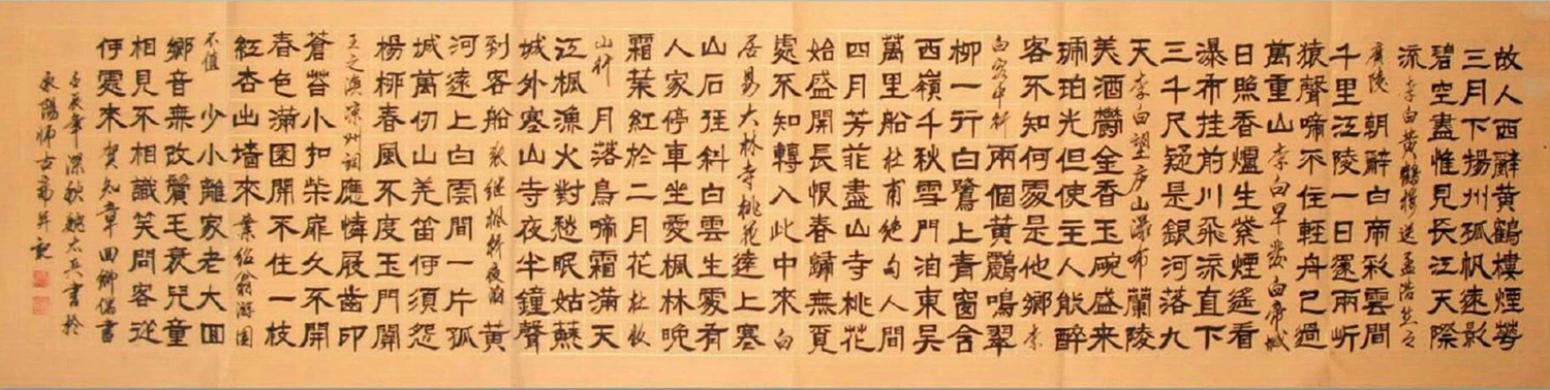 故人西辭黃鶴樓煙華
三月下揚州孤帆遠影
碧空盡惟見長江天際
流 李白黃鶴樓送孟浩然之
廣陵 朝辭白帝彩雲間
千里江陵一日還兩岍
猿聲啼不住輕舟已過
萬重山 李白早發白帝城
日照香爐生紫煙遙看
瀑布挂前川飛流直下
三千尺疑是銀河落九
天 李白望庐山瀑布 蘭陵
美酒鬱金香玉碗盛来
琥珀光但使主人能醉
客不知何處是他鄉 李
白客中行 兩個黃鸝鳴翠
柳一行白鷺上青窗含
西嶺千秋雪門泊東吳
萬里船 杜甫絕句 人間
四月芳菲盡山寺桃花
始盛開長恨春歸無覓
處不知轉入此中來 白
居易大林寺桃花 遠上寒
山石徑斜白雲生處有
人家停車坐愛楓林晚
霜葉紅於二月花 杜牧
山行 月落烏啼霜滿天
江楓漁火對愁眠姑蘇
城外寒山寺夜半鐘聲
到客船 張继枫桥夜泊 黃
河遠上白雲間一片孤
城萬仞山羌笛何須怨
楊柳春風不度玉門關
王之渙凉州詞 應憐屐齒印
蒼苔小扣柴扉久不開
春色滿園開不住一枝
紅杏出墻來 葉紹翁游園
不值 少小離家老大回
鄉音無改鬢毛衰兒童
相見不相識笑問客從
何處來 賀知章回鄉偶書
壬辰年深秋姚太兵書於
永陽師古齋并記